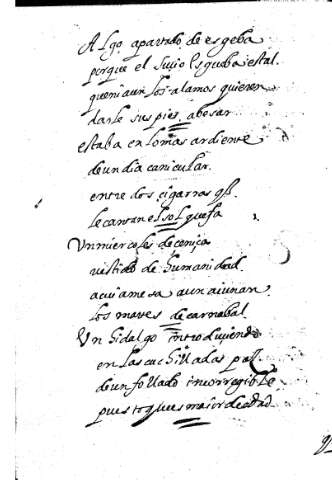 Algo apartado de esgeba
porque el suçio Esgueba es tal.
que ni aun los alamos quieren
darle sus pies, a besar
estaba en lo mas ardiente
de un dia canicular.
entre dos cigarras q̃
le cantan el sol que fa
Un miercoles de ceniça
vestido de humanidad.
a cuia mesa aun aiunan
los martes de carnabal
Un hidalgo introduziendo
en las cuchilladas paz
de un follado incorregible
puesto que es maior de edad